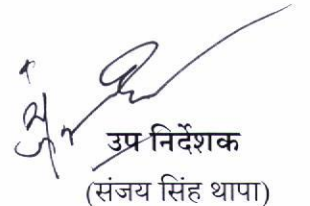 उप निर्देशक
(संजय सिंह थापा)